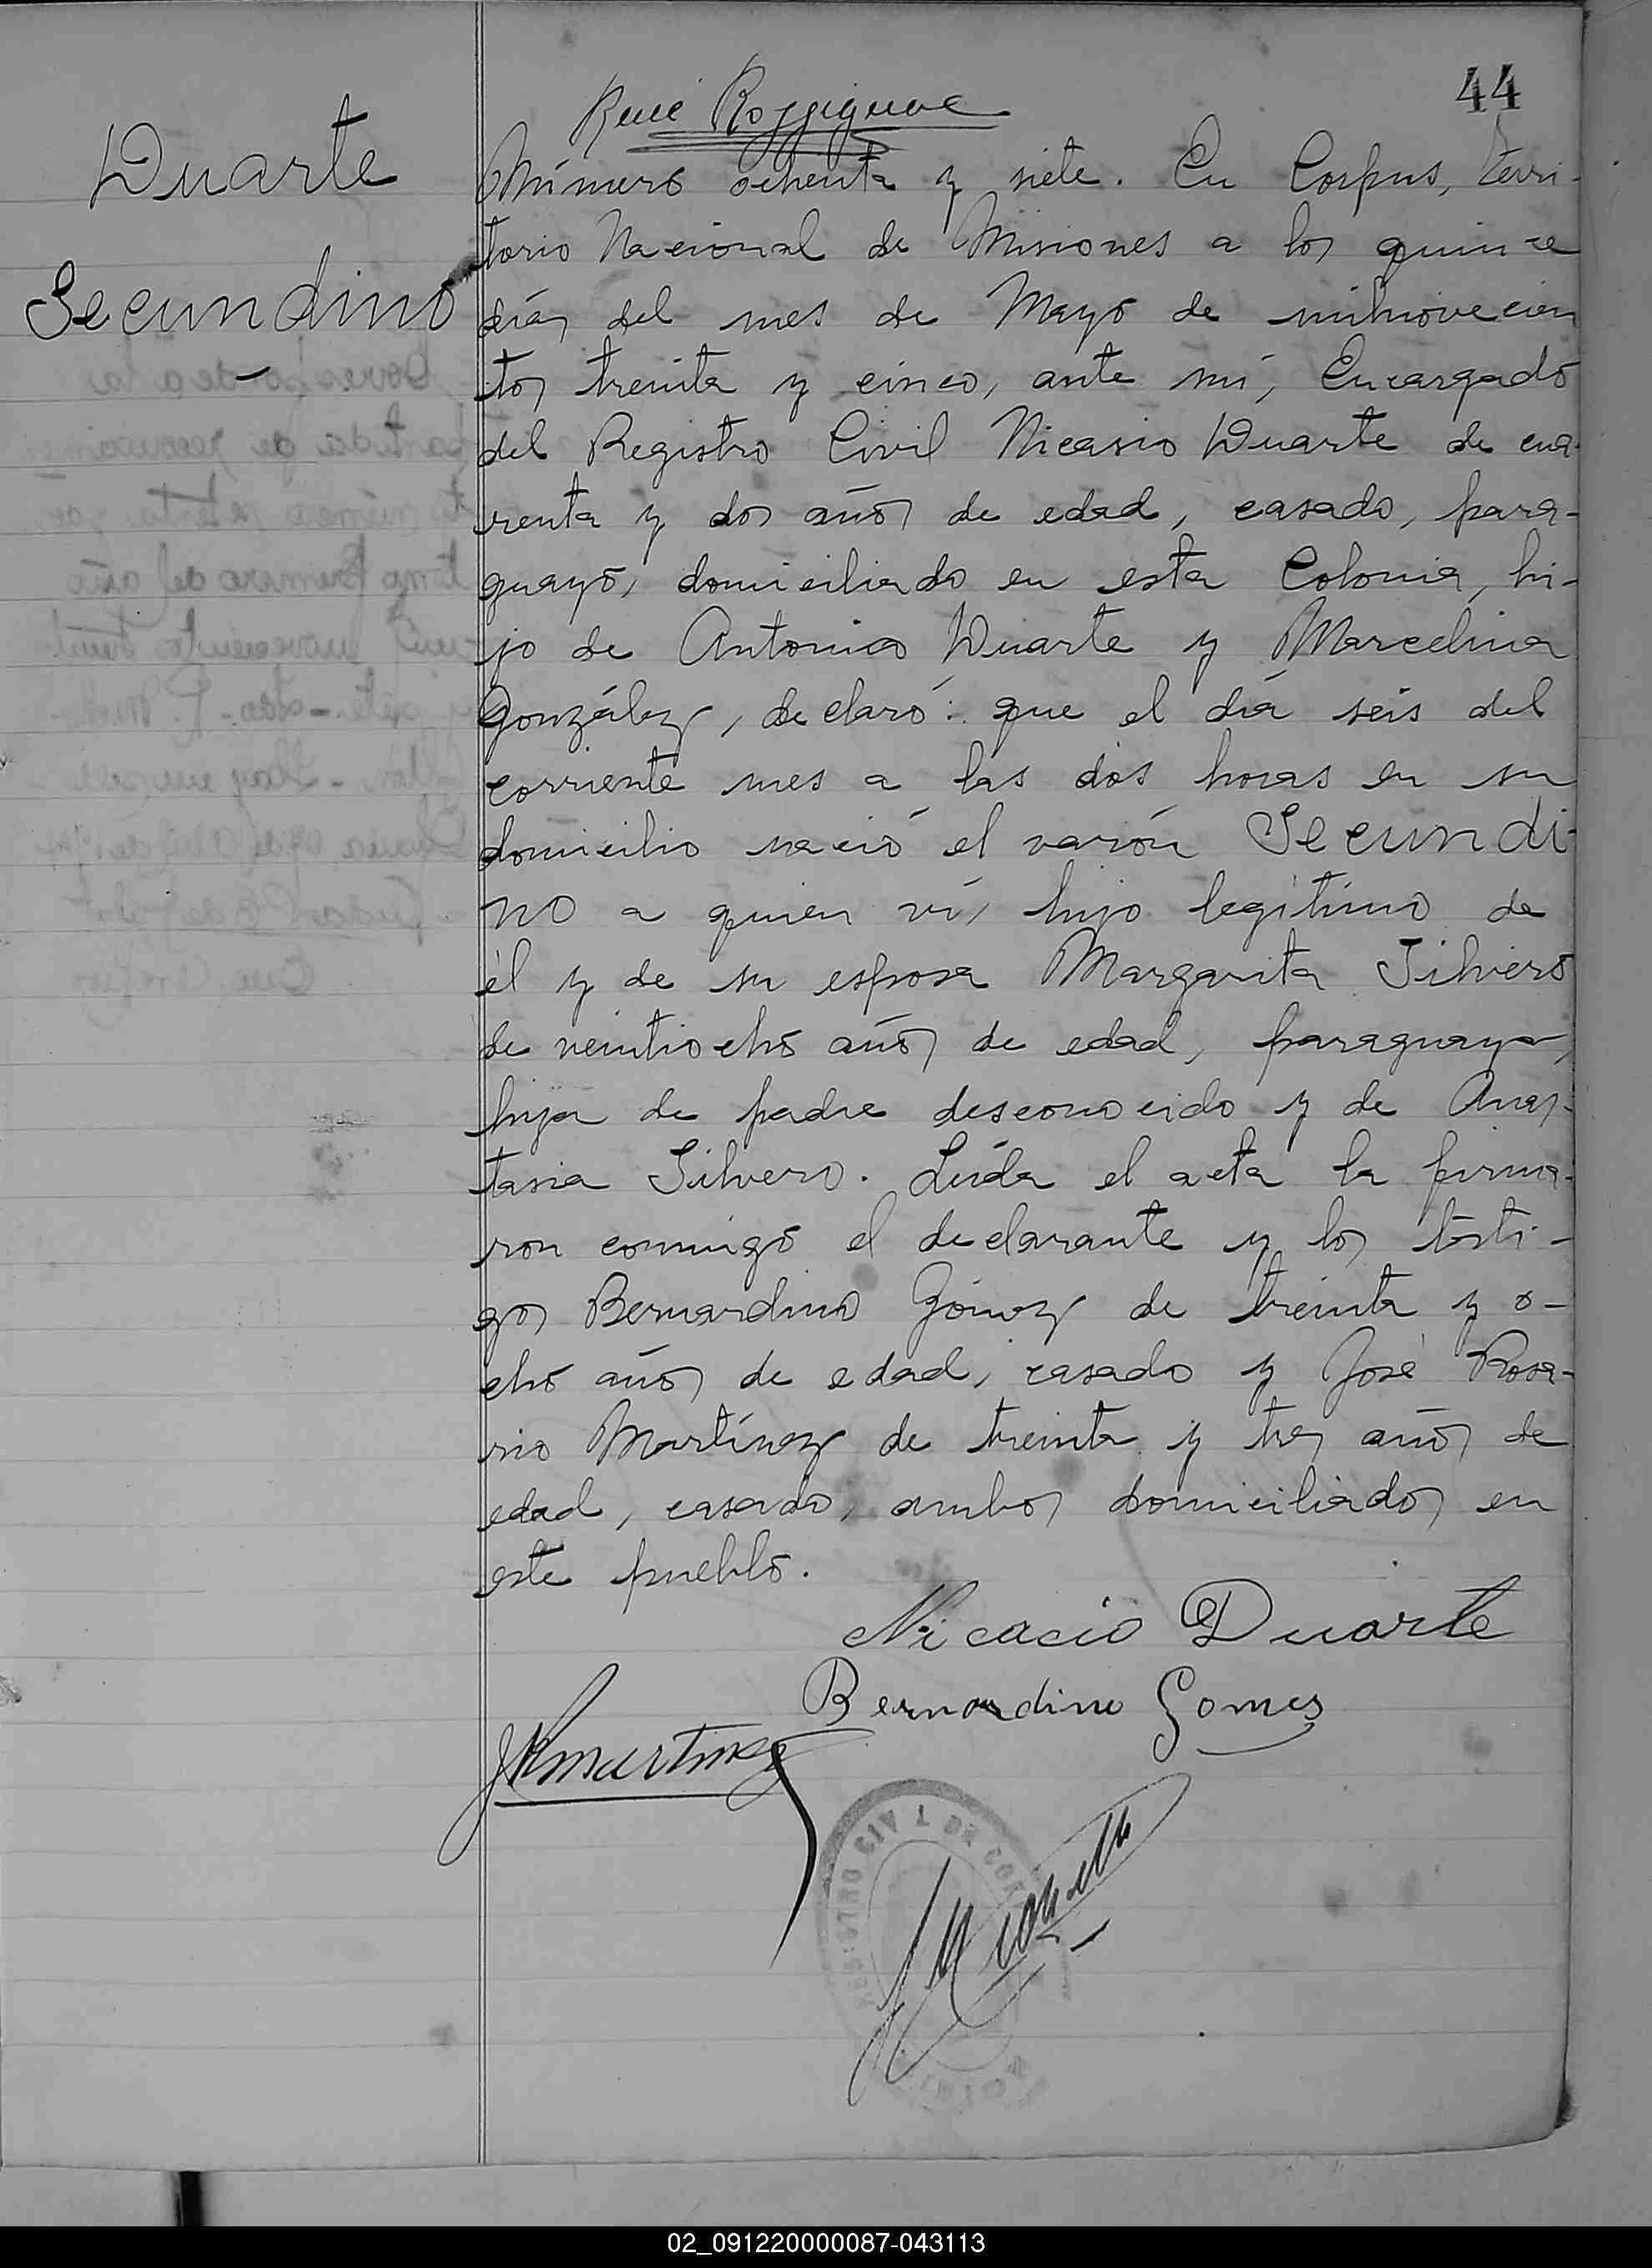 44
René Rossignol
Duarte
Secundino
Número ochenta y siete. En Corpus, Terri-
torio Nacional de Misiones a los quince
días del mes de Mayo de milnovecien
tos treinta y cinco, ante mí, Encargado
del Registro Civil Nicasio Duarte de cua-
renta y dos años de edad, casado, para-
guayo, domiciliado en esta Colonia, hi-
jo de Antonio Duarte y Marcelina
González, declaró: que el día seis del
corriente mes a las dos horas en su
domicilio nació el varón Secundi-
no a quien ví, hijo legítimo de
él y de su esposa Margarita Silvero
de veintiocho años de edad, paraguaya,
hija de padre desconocido y de Anas-
tasia Silvero. Leída el acta la firma-
ron conmigo el declarante y los testi-
gos Bernardino Gómez de treinta y o-
cho años de edad, casado y José Rosa-
rio Martínez de treinta y tres años de
edad, casado, ambos domiciliados en
este pueblo.
Nicacio Duarte
Bernardino Gomes
JRMartinez
02_091220000087-043113